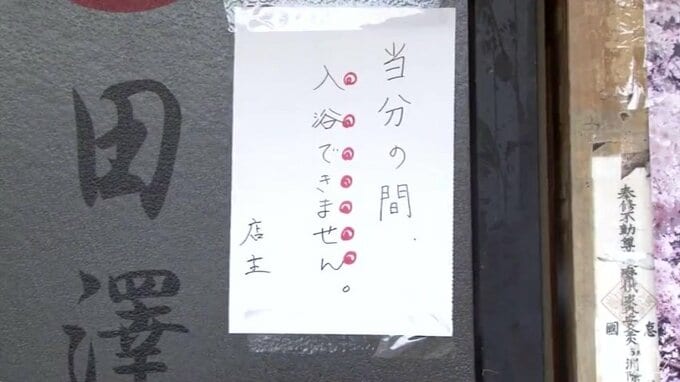 当分の間、
入浴できません。
店主
田澤
奉修不動尊